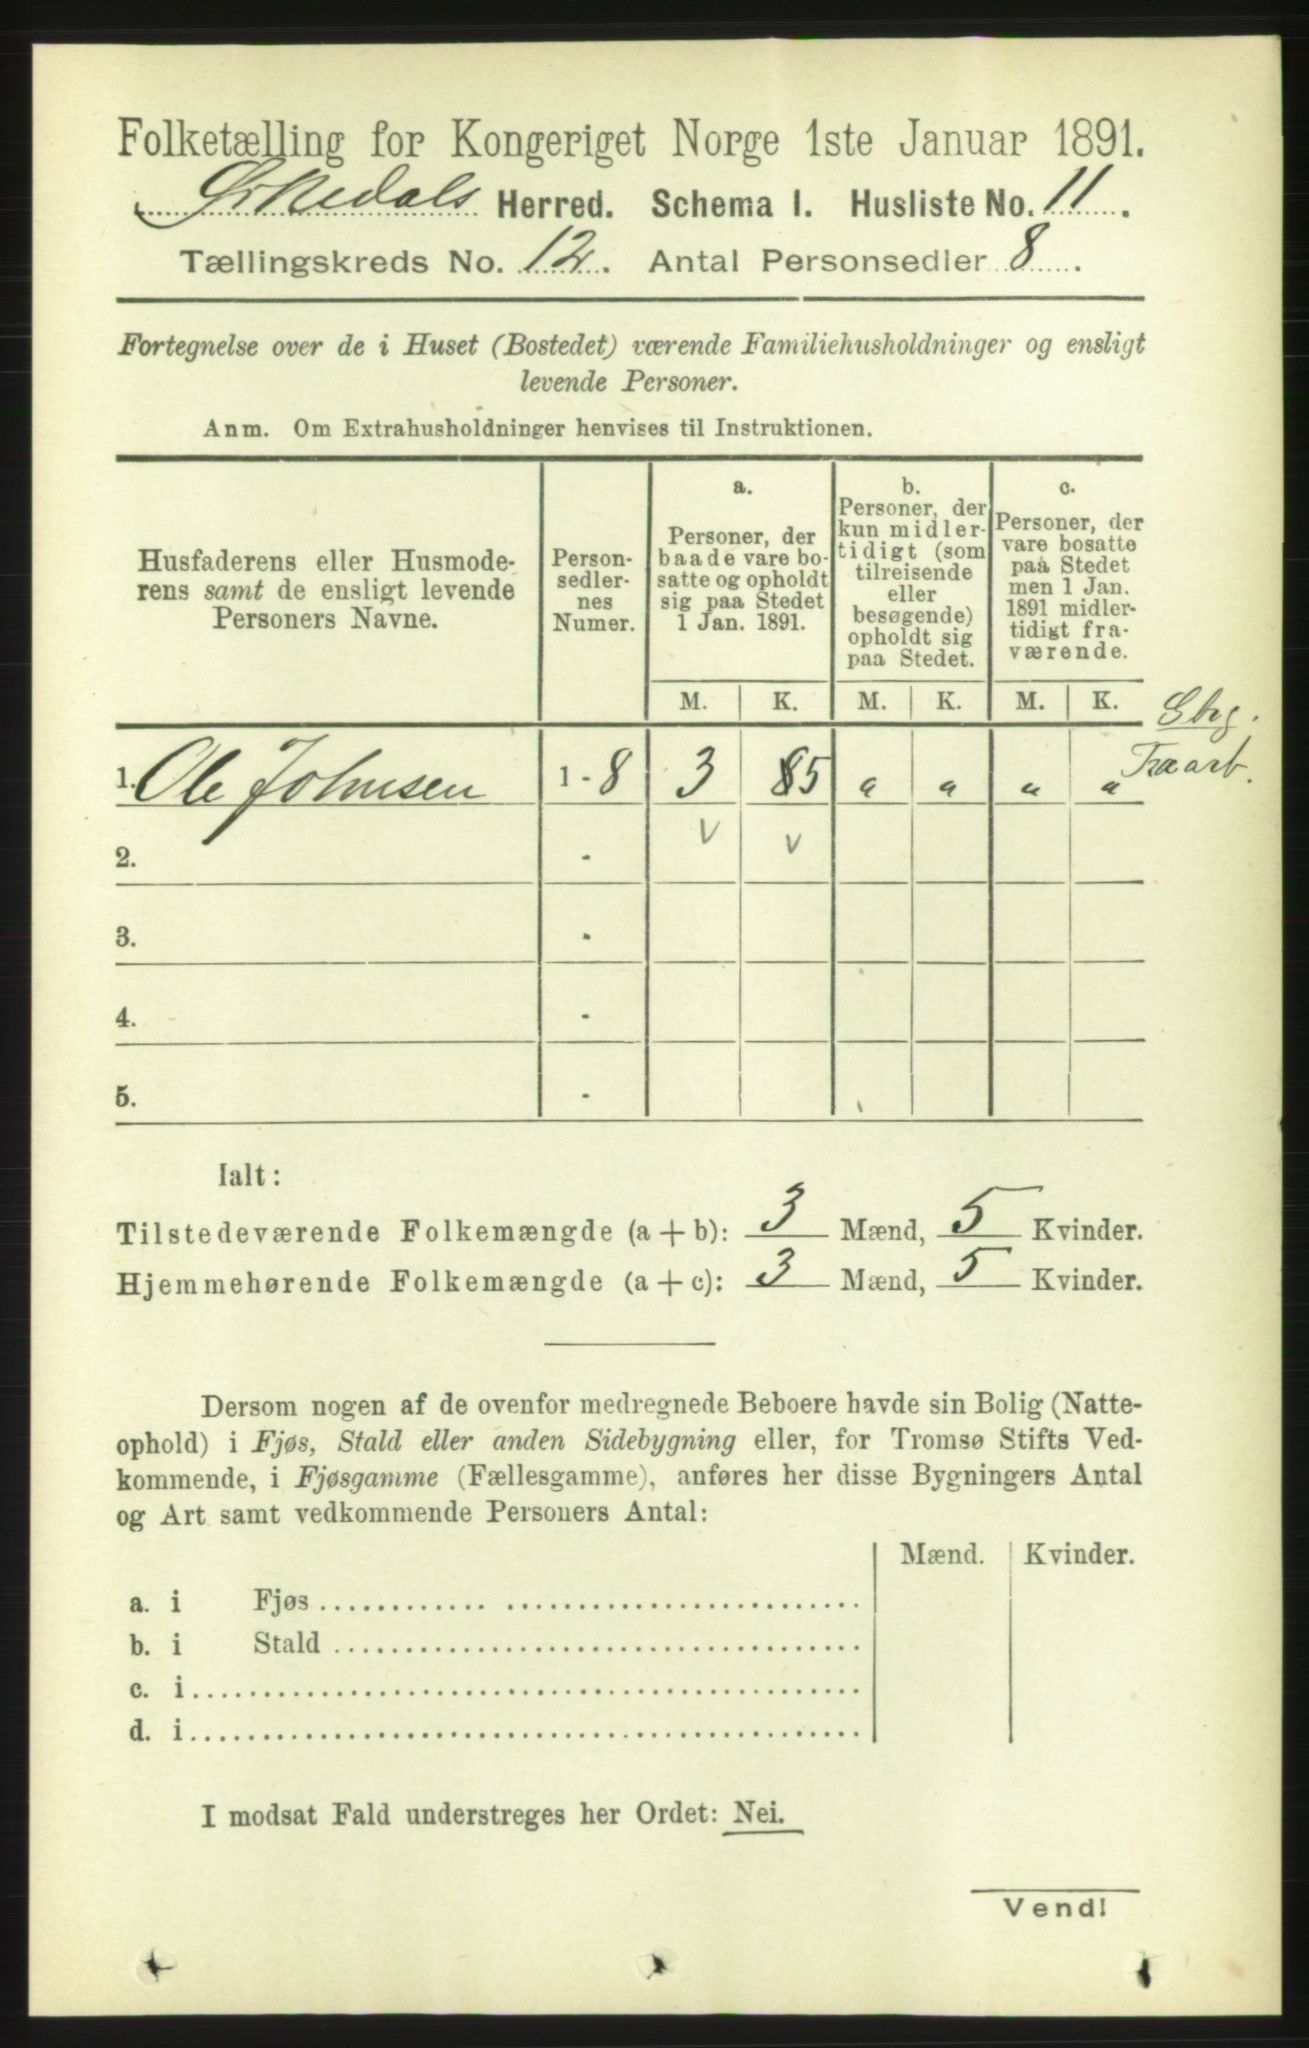 Folketælling for Kongeriget Norge 1ste Januar 1891.
Orkedals Herred. Schema I. Husliste No. 11.
Tællingskreds No. 12. Antal Personsedler 8.
Fortegnelse over de i Huset (Bostedet) værende Familiehusholdninger og ensligt
levende Personer.
Anm. Om Extrahusholdninger henvises til Instruktionen.
Husfaderens eller Husmode-
rens samt de ensligt levende
Personers Navne.
Person-
sedler-
nes
Numer.
a.
Personer, der
baade vare bo-
satte og opholdt
sig paa Stedet
1 Jan. 1891.
b.
Personer, der
kun midler-
tidigt (som
tilreisende
eller
besøgende)
opholdt sig
paa Stedet.
c.
Personer, der
vare bosatte
paa Stedet
men 1 Jan.
1891 midler-
tidigt fra-
værende.
M. K. M. K. M. K.
Gbrg.
Træarb.
1. Ole Johnsen 1 - 8 3 5 " " " "
v v
2. -
3. -
4. -
5. -
Ialt:
Tilstedeværende Folkemængde (a + b): 3 Mænd, 5 Kvinder.
Hjemmehørende Folkemængde (a + c): 3 Mænd, 5 Kvinder.
Dersom nogen af de ovenfor medregnede Beboere havde sin Bolig (Natte-
ophold) i Fjøs, Stald eller anden Sidebygning eller, for Tromsø Stifts Ved-
kommende, i Fjøsgamme (Fællesgamme), anføres her disse Bygningers Antal
og Art samt vedkommende Personers Antal:
Mænd. Kvinder.
a. i Fjøs
b. i Stald
c. i
d. i
I modsat Fald understreges her Ordet: Nei.
Vend!